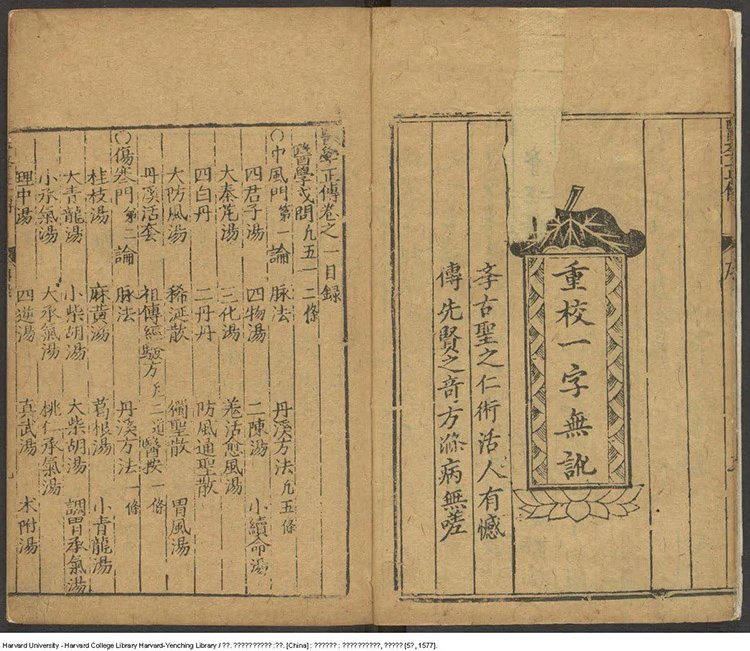 重校一字無訛
斈古聖之仁術活人有憾
傳先賢之竒方滌病無嗟
學正傳卷之一目錄
醫學或問凡五一二條
○中風門第一論 脉法 丹溪方法凡五條
四君子湯 四物湯 二陳湯 小續命湯
大秦艽湯 三化湯 羗活愈風湯
四白丹 二丹丹 防風通聖散
大防風湯 稀涎散 聖散 胃風湯
丹溪活套 祖傳經驗方凡二道 醫按一條
○傷寒門第二論 脉法 丹溪方法一條
桂枝湯 麻黃湯 葛根湯 小青龍湯
大青龍湯 小柴胡湯 大柴胡湯 調胃承氣湯
小承氣湯 大承氣湯 桃仁承氣湯
理中湯 四逆湯 真武湯 术附湯
Harvard University - Harvard College Library Harvard-Yenching Library / ??. ?????????? :??. [China] : ?????? : ??????????, ????? [5?, 1577].